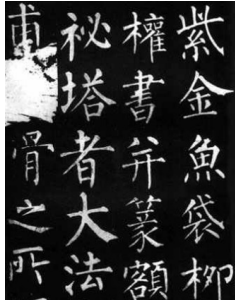 紫金魚袋柳
權書并篆額
祕塔者大法
甫骨之所